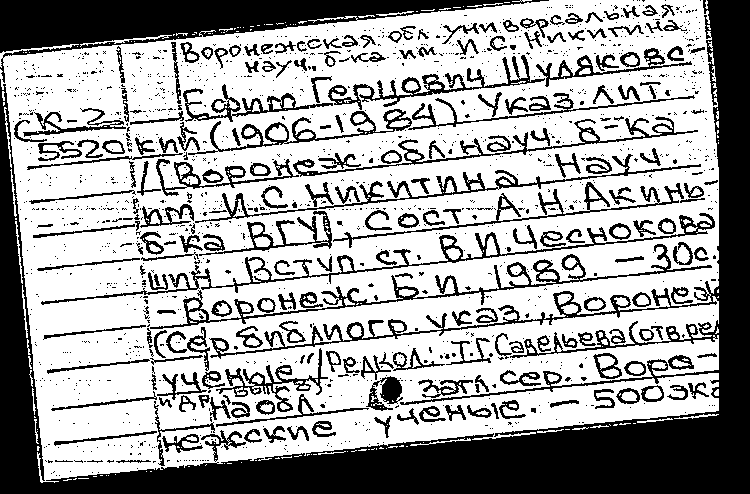 Воронежская обл. универсальная
науч. б-ка им. И.С. Никитина
Ефим Герцович Шуляковс-
СК-2
5520
кий (1906-1984): Указ. лит.
/[Воронеж. обл. науч. б-ка
им. И.С. Никитина, Науч.
б-ка ВГУ]; Сост. А.Н. Акинь-
шин; Вступ. ст. В.И. Чеснокова
- Воронеж: Б.И., 1989. - 30с.
(Сер. библиогр. указ. „Воронеж
ученые"/Редкол.: Т.Г. Савельева (отв. ред
и др.;
на обл. Загл. сер.: Воро-
нежские ученые. - 500 экз